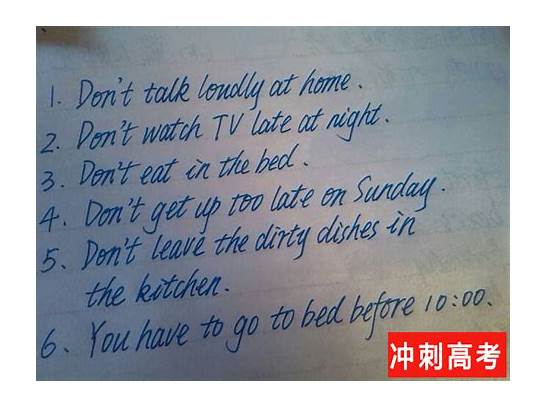 1. Don't talk loudly at home.
2. Don't watch TV late at night.
3. Don't eat in the bed.
4. Don't get up too late on Sunday.
5. Don't leave the dirty dishes in
the kitchen.
6. You have to go to bed before 10:00.
冲刺高考